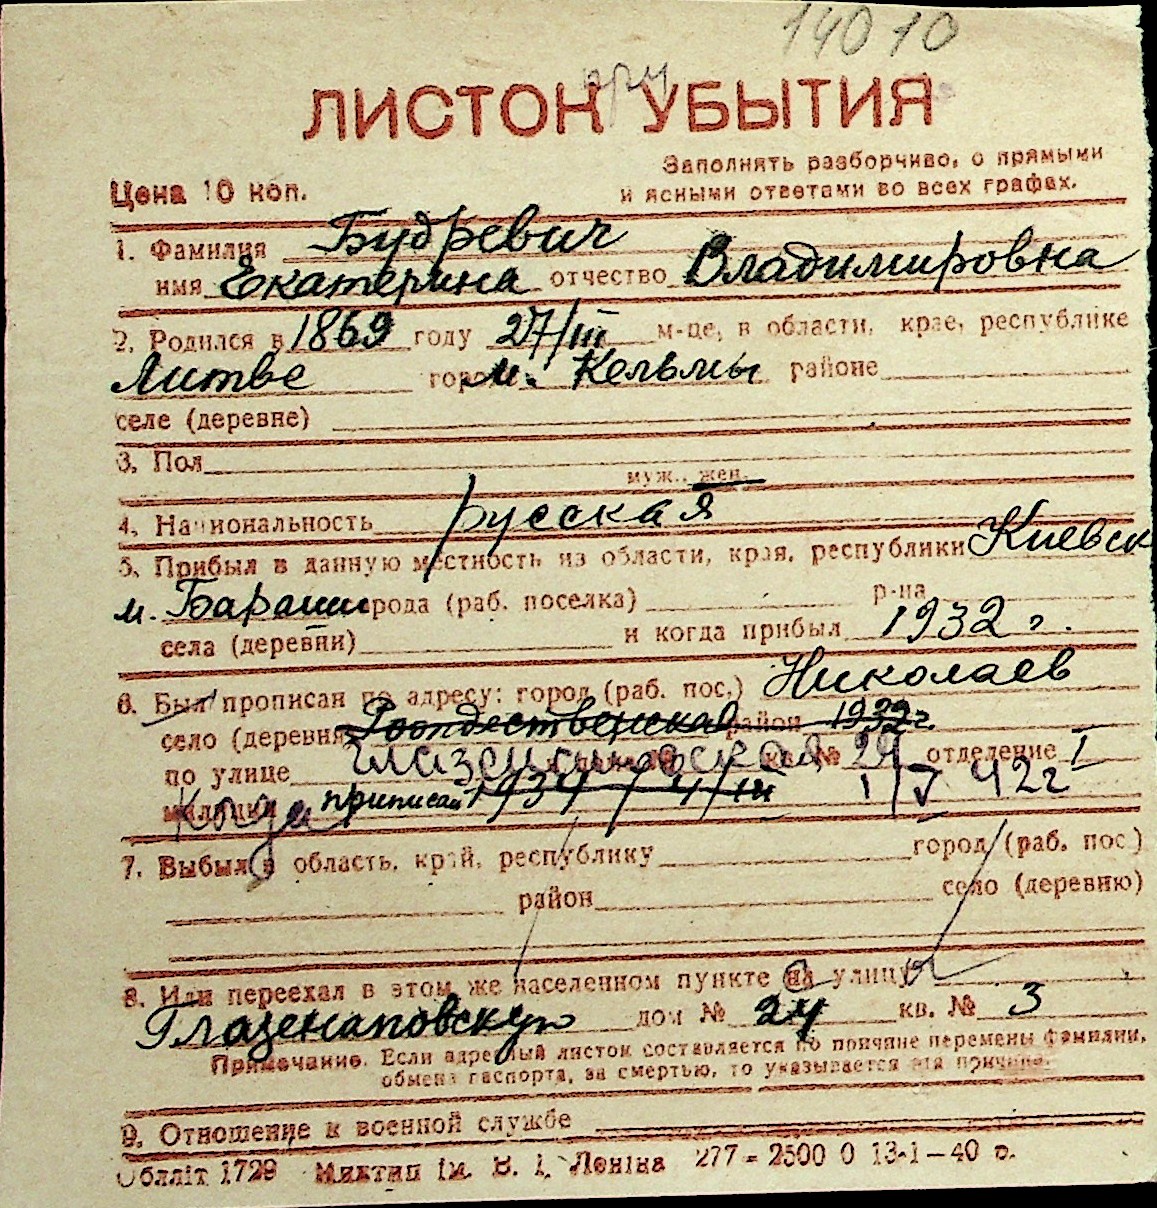 14010
при
ЛИСТОК УБЫТИЯ
Заполнять разборчиво, с прямыми
Цена 10 коп.
и ясными ответами во всех графах.
1. Фамилия Будревич
имя Екатерина отчество Владимировна
2. Родился в 1869 году 27/III м-це, в области, крае, республике
Литве городе м. Кельмы районе
селе (деревне)
3. Пол муж., жен.
4. Национальность русская
5. Прибыл в данную местность из области, края, республики Киевск
м. Бараши города (раб. поселка) р-на
села (деревни) и когда прибыл 1932 г.
6. Был прописан по адресу: город (раб. пос.) Николаев
село (деревня) Рождественская район 1932 г.
по улице Глазенаповская № 24 отделение I
милиции Когда прописан 1934 / 4/III 1/V 42 г
7. Выбыл в область, край, республику город (раб. пос.)
район село (деревню)
8. Или переехал в этом же населенном пункте на улицу
Глазенаповскую дом № 24 кв. № 3
Примечание. Если адресный листок составляется по причине перемены фамилии,
обмена паспорта, за смертью, то указывается эта причина.
9. Отношение к военной службе
Обллiт 1729 Миктип iм. В. I. Ленiна 277 - 2500 0 13-1-40 р.